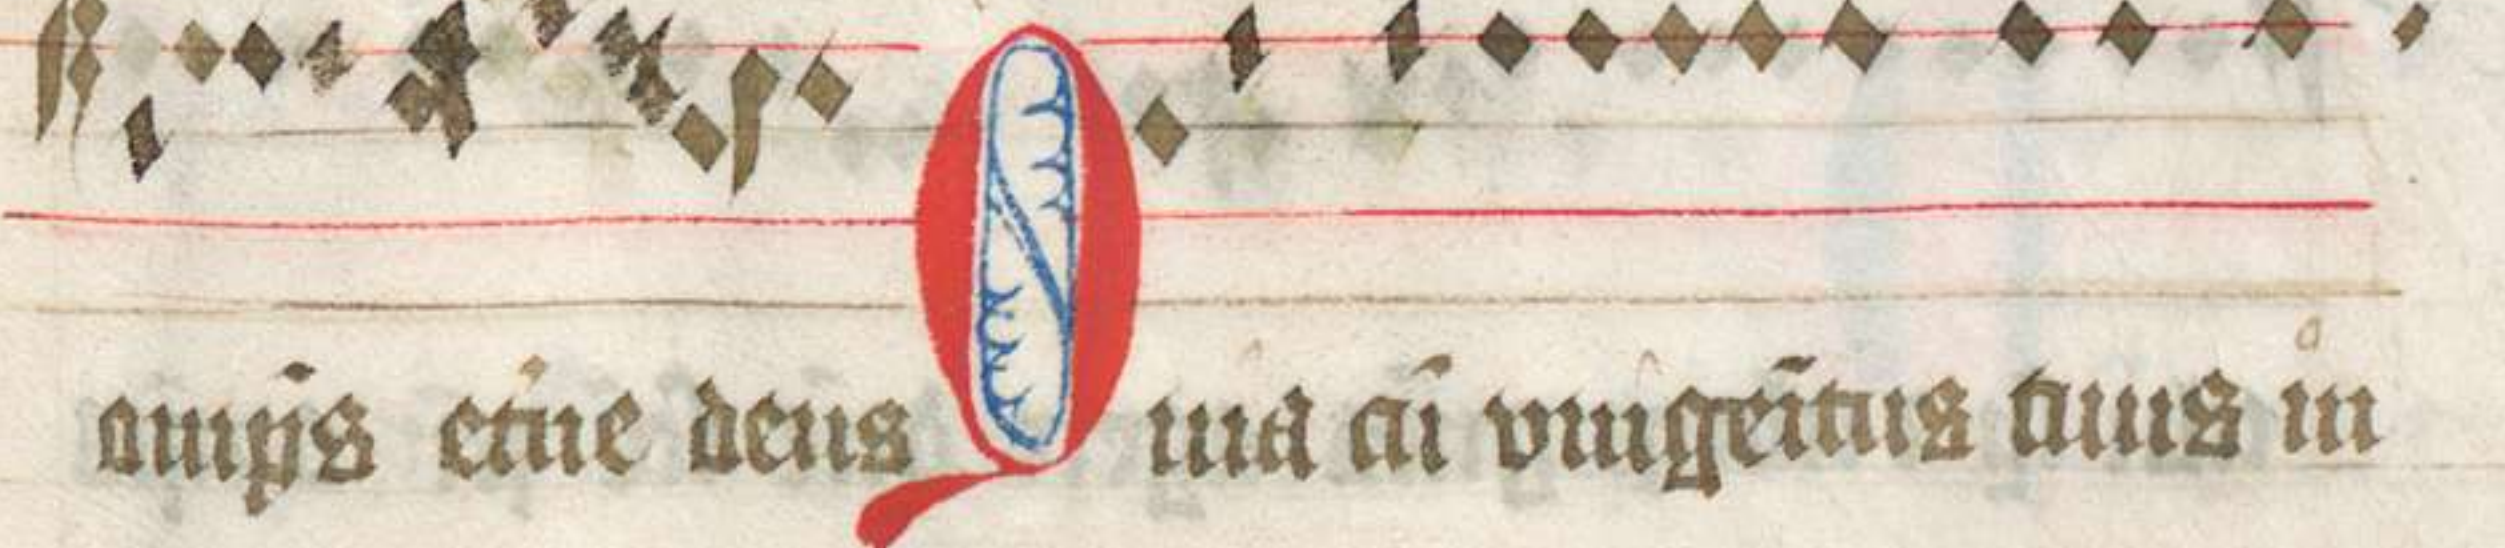 om̅ps et̅ne deus Quia cu̅ vnige̅itus tuus in